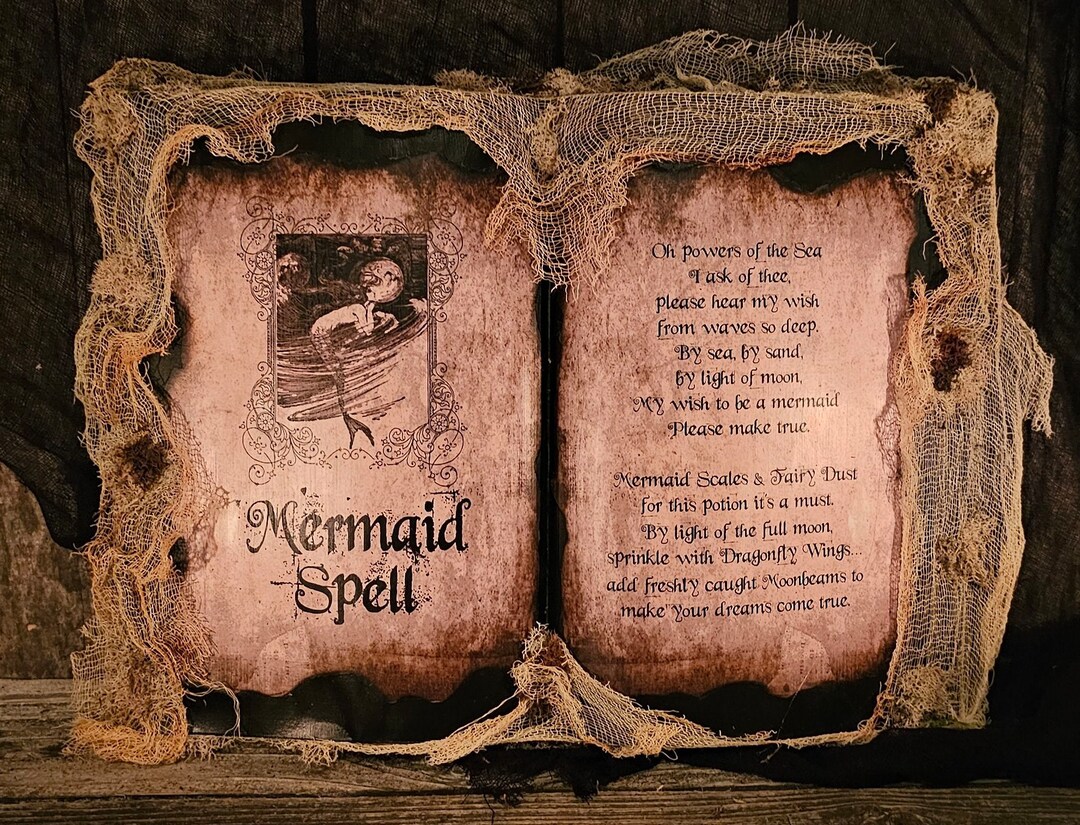 Mermaid
Spell
Oh powers of the Sea
I ask of thee,
please hear my wish
from waves so deep.
By sea, by sand,
by light of moon,
My wish to be a mermaid
Please make true.
Mermaid Scales & Fairy Dust
for this potion it's a must.
By light of the full moon,
sprinkle with Dragonfly Wings...
add freshly caught Moonbeams to
make your dreams come true.